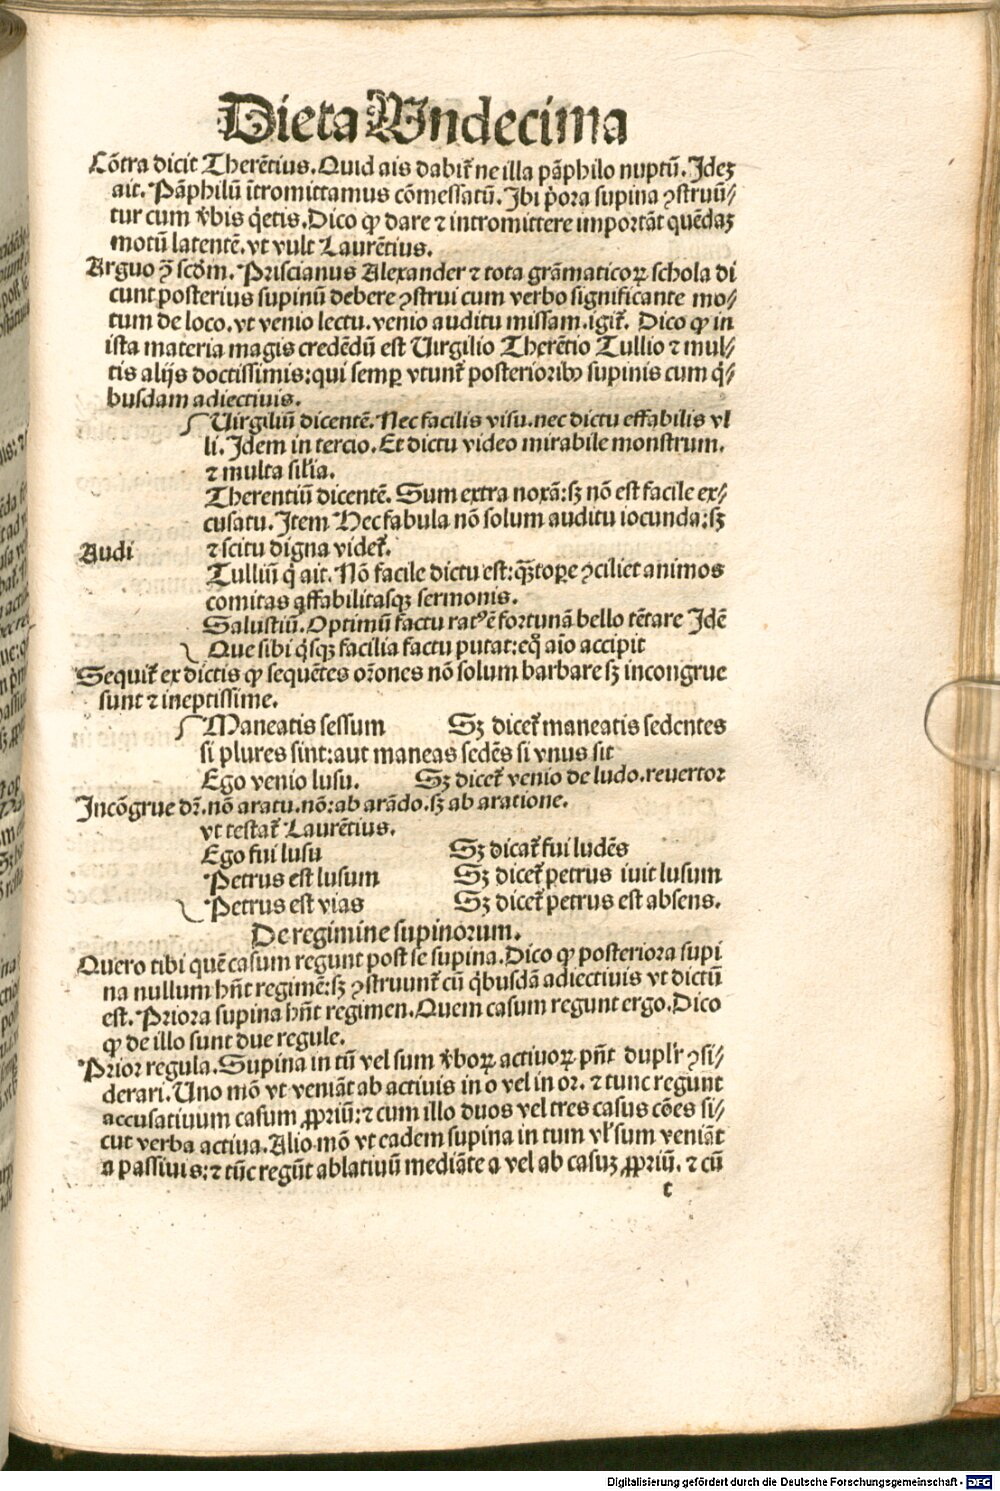 Dieta Vndecima
Cõtra dicit Therẽtius. Quid ais dabit̃ ne illa pãphilo nuptũ. Ideꝫ
ait. Pãphilũ ĩtromittamus cõmessatũ. Ibi p̃ora supina ꝯstruũ⸗
tur cum ṽbis q̃etis. Dico ꝙ dare ⁊ intromittere importãt quẽdaꝫ
motũ latentẽ. vt vult Laurẽtius.
Arguo ꝯ̃ scõm. Priscianus Alexander ⁊ tota grãmaticoꝝ schola di
cunt posterius supinũ debere ꝯstrui cum verbo significante mo⸗
tum de loco. vt venio lectu. venio auditu missam. igit̃. Dico ꝙ in
ista materia magis credẽdũ est Uirgilio Therẽtio Tullio ⁊ mul⸗
tis alijs doctissimis: qui semꝑ vtunt̃ posterioribꝰ supinis cum q̃⸗
busdam adiectiuis.
Uirgiliũ dicentẽ. Nec facilis visu. nec dictu effabilis vl
li. Idem in tercio. Et dictu video mirabile monstrum.
⁊ multa sil̃ia.
Therentiũ dicentẽ. Sum extra noxã: sꝫ nõ est facile ex⸗
cusatu. Item Hec fabula nõ solum auditu iocunda: sꝫ
Audi
⁊ scitu digna videt̃.
Tulliũ q̃ ait. Nõ facile dictu est: q̃ꝫtoꝑe ꝯciliet animos
comitas affabilitasqꝫ sermonis.
Salustiũ. Optimũ factu ratꝰ ẽ fortunã bello tẽtare Idẽ
Que sibi q̃sqꝫ facilia factu putat: eq̃ aĩo accipit
Sequit̃ ex dictis ꝙ sequẽtes or̃ones nõ solum barbare sꝫ incongrue
sunt ⁊ ineptissime.
Maneatis sessum Sꝫ dicet̃ maneatis sedentes
si plures sint: aut maneas sedẽs si vnus sit
Ego venio lusu. Sꝫ dicet̃ venio de ludo. reuertor
Incõgrue dr̃. nõ aratu. nõ: ab arãdo. sꝫ ab aratione.
vt testat̃ Laurẽtius.
Ego fui lusu Sꝫ dicat̃ fui ludẽs
Petrus est lusum Sꝫ dicet̃ petrus iuit lusum
Petrus est vias Sꝫ dicet̃ petrus est absens.
De regimine supinorum.
Quero tibi quẽ casum regunt post se supina. Dico ꝙ posteriora supi
na nullum hñt regimẽ: sꝫ ꝯstruunt̃ cũ q̃busdã adiectiuis vt dictũ
est. Priora supina hñt regimen. Quem casum regunt ergo. Dico
ꝙ de illo sunt due regule.
Prior regula. Supina in tũ vel sum ṽboꝝ actiuoꝝ pñt duplr̃ ꝯsi⸗
derari. Uno mõ vt veniãt ab actiuis in o vel in or. ⁊ tunc regunt
accusatiuum casum ꝓpriũ: ⁊ cum illo duos vel tres casus cões si⸗
cut verba actiua. Alio mõ vt eadem supina in tum vl̃ sum veniãt
a passiuis: ⁊ tũc regũt ablatiuũ mediãte a vel ab casuꝫ ꝓpriũ. ⁊ cũ
c
Digitalisierung gefördert durch die Deutsche Forschungsgemeinschaft - DFG